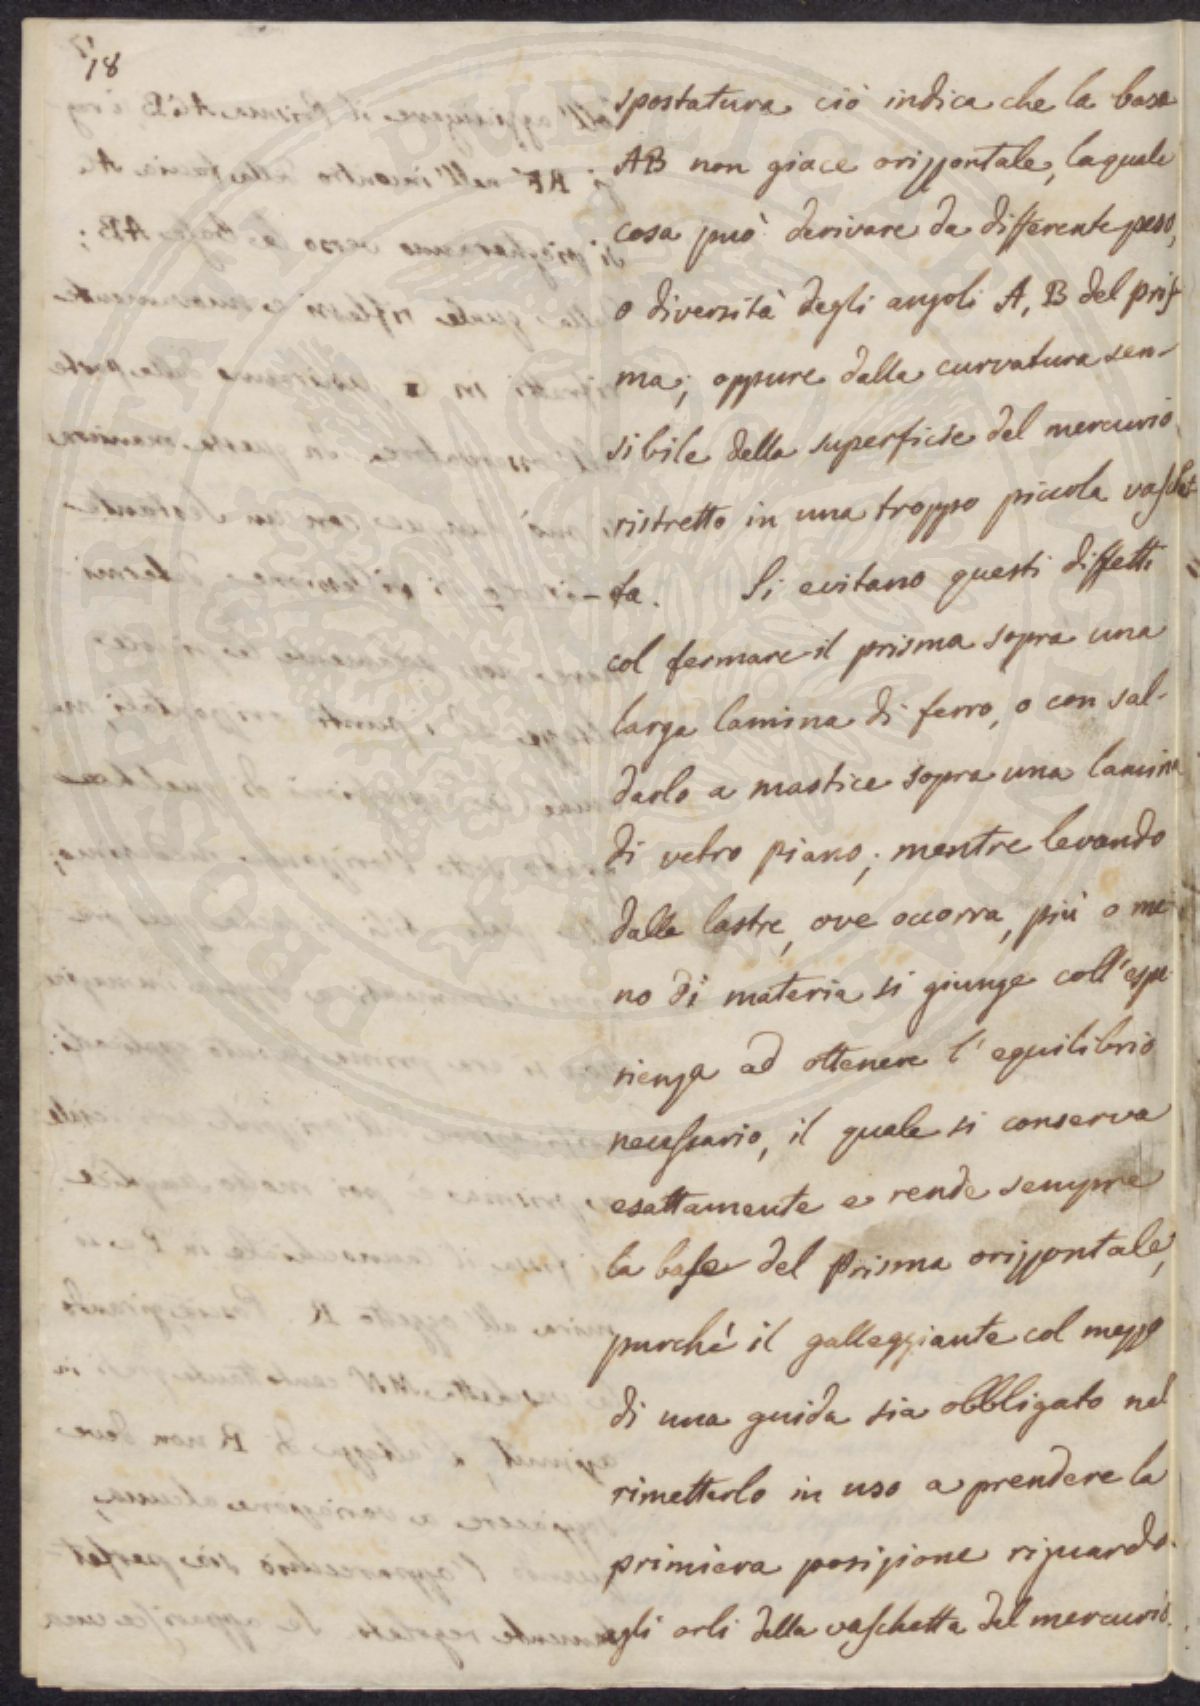 18
spostatura ciò indica che la base
AB non giace orizzontale, la quale
cosa può derivare da differente peso,
o diversità degli angoli A, B del pris-
ma; oppure dalla curvatura sen-
sibile della superficie del mercurio
ristretto in una troppo piccola vaschet-
ta. Si evitano questi diffetti
col fermare il prisma sopra una
larga lamina di ferro, o con sal-
darlo a mastice sopra una lamina
di vetro piano; mentre levando
dalle lastre, ove occorra, più o me
no di materia si giunge coll'espe
rienza ad ottenere l'equilibrio
necessario, il quale si conserva
esattamente e rende sempre
la base del Prisma orizzontale,
purché il galleggiante col mezzo
di una guida sia obbligato nel
rimetterlo in uso a prendere la
primiera posizione riguardo
agli orli della vaschetta del mercurio.